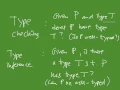 Type Checking : Given P and type T
does P have type T?
(Is P well-typed?)
Type Inference : Given P, ∃ there
a type T s.t. P
has type T?
(Can P be well-typed)